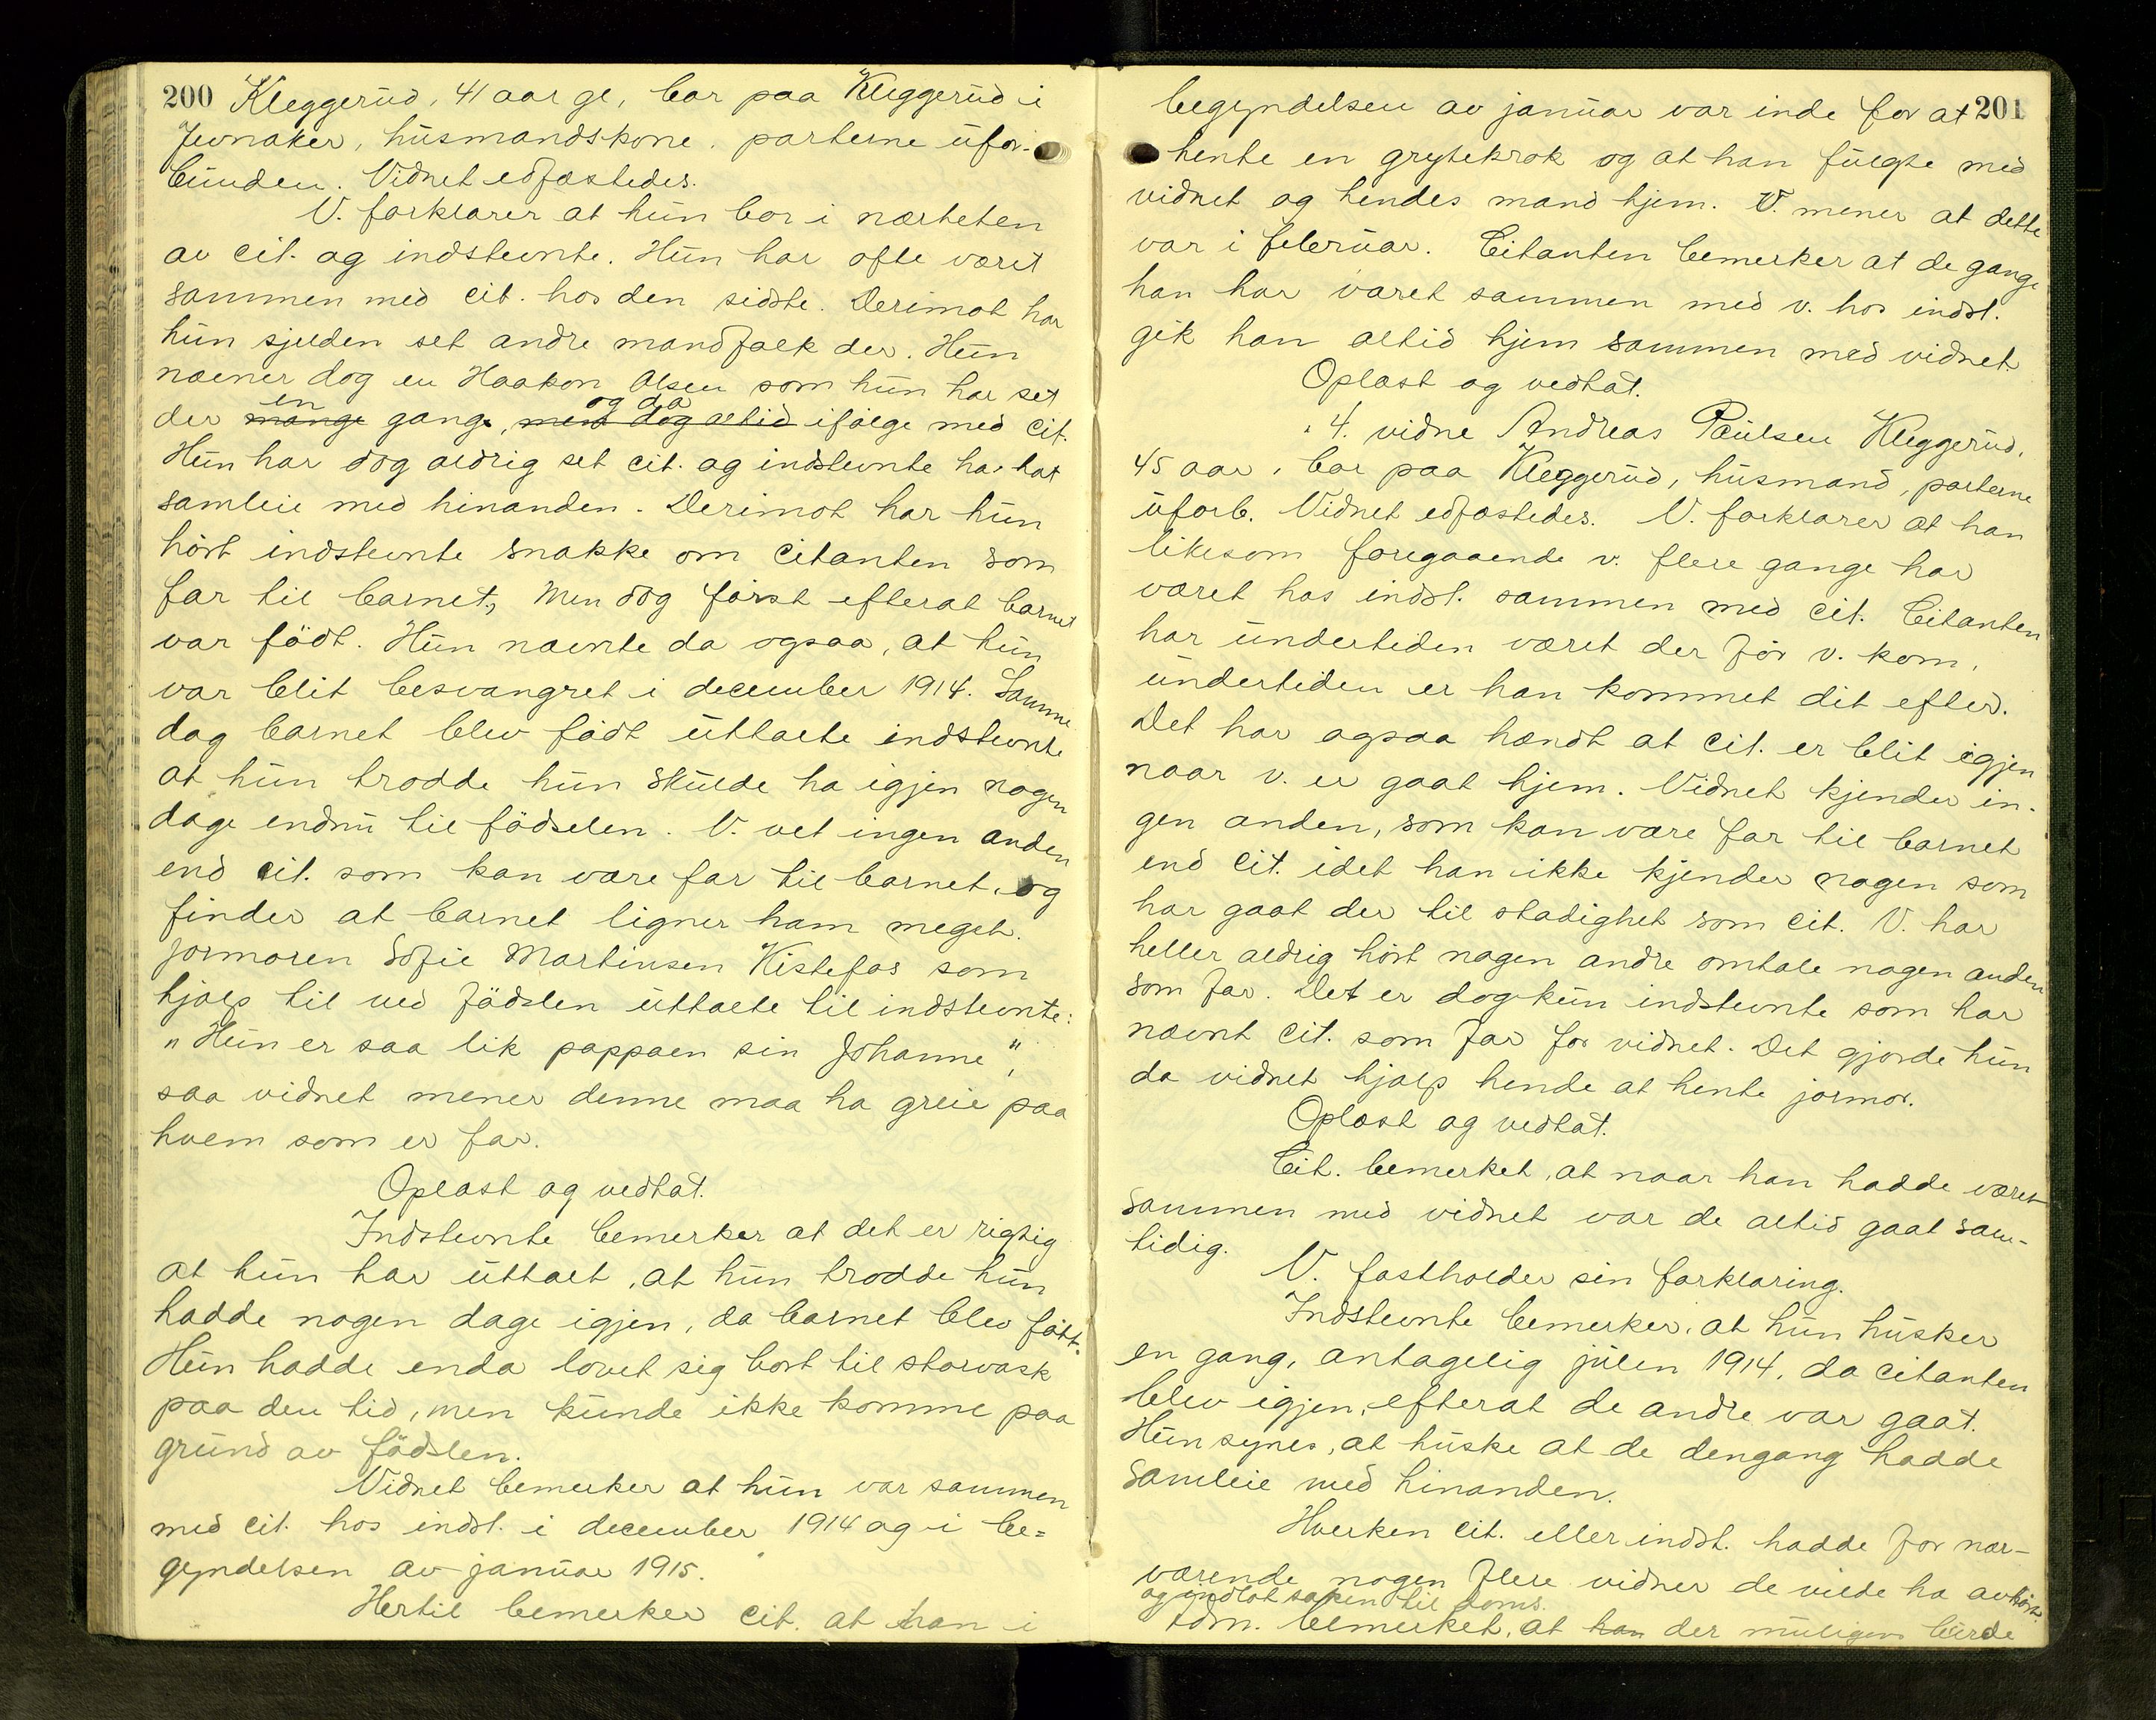 200 Kleggerud, 41 aar gl, bor paa Kleggerud i
Jevnaker, husmandskone, parterne ufor-
bunden. Vidnet edfæstedes.
V. forklarer at hun bor i nærheten
av cit. og indstevnte. Hun har ofte været
sammen med cit. hos den sidste. Derimot har
hun sjelden set andre mandfolk der. Hun
nævner dog en Haakon Olsen som hun har set
en og da
der mange gange, men dog altid ifølge med cit.
Hun har dog aldrig set cit. og indstevnte ha hat
samleie med hinanden. Derimot har hun
hørt indstevnte snakke om citanten som
far til barnet, men dog først efterat barnet
var født. Hun nævnte da ogsaa, at hun
var blit besvangret i december 1914. Samme
dag barnet blev født uttalte indstevnte
at hun trodde hun skulde ha igjen nogen
dage endnu til fødselen. V. vet ingen anden
end cit. som kan være far til barnet og
finder at barnet ligner ham meget.
Jormoren Sofie Martinsen Kistefos som
hjalp til ved fødslen uttalte til indstevnte:
"Hun er saa lik pappaen sin Johanne",
saa vidnet mener denne maa ha greie paa
hvem som er far.
Oplæst og vedtat.
Indstevnte bemerker at det er rigtig
at hun har uttalt, at hun trodde hun
hadde nogen dage igjen, da barnet blev født.
Hun hadde enda lovet sig bort til storvask
paa den tid, men kunde ikke komme paa
grund av fødslen.
Vidnet bemerker at hun var sammen
med cit. hos indst. i december 1914 og i be-
gyndelsen av januar 1915.
Hertil bemerker cit. at han i
begyndelsen av januar var inde for at 201
hente en grytekrok og at han fulgte med
vidnet og hendes mand hjem. V. mener at dette
var i februar. Citanten bemerker at de gange
han har været sammen med v. hos indst.
gik han altid hjem sammen med vidnet
Oplæst og vedtat.
4. vidne Andreas Paulsen Kleggerud,
45 aar, bor paa Kleggerud, husmand, parterne
uforb. Vidnet edfæstedes. V. forklarer at han
likesom foregaaende v. flere gange har
været hos indst. sammen med cit. Citanten
har undertiden været der før v. kom,
undertiden er han kommet dit efter.
Det har ogsaa hændt at cit. er blit igjen
naar v. er gaat hjem. Vidnet kjender in-
gen anden, som kan være far til barnet
end cit. idet han ikke kjender nogen som
har gaat der til stadighet som cit. V. har
heller aldrig hørt nogen andre omtale nogen anden
som far. Det er dog kun indstevnte som har
nævnt cit. som far for vidnet. Det gjorde hun
da vidnet hjalp hende at hente jormor.
Oplæst og vedtat.
Cit. bemerket, at naar han hadde været
sammen med vidnet var de altid gaat sam-
tidig.
V. fastholder sin forklaring.
Indstevnte bemerker, at hun husker
en gang, antagelig julen 1914, da citanten
blev igjen, efterat de andre var gaat.
Hun synes, at huske at de dengang hadde
samleie med hinanden.
Hverken cit. eller indst. hadde for nær-
værende nogen flere vidner de vilde ha avhørt.
og indlot saken til doms.
Adm. bemerket, at han der muligens burde